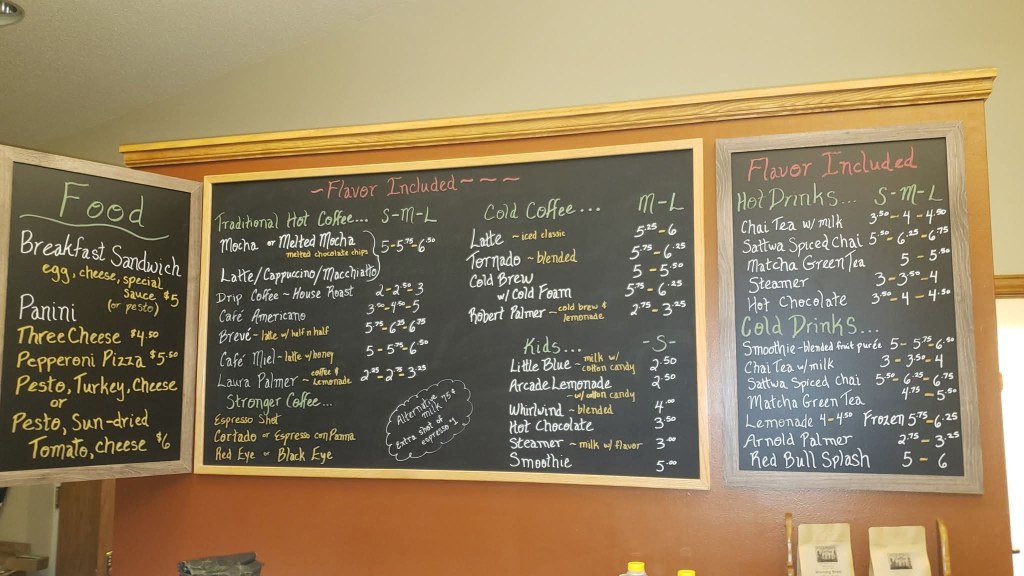 Food
Breakfast Sandwich
egg, cheese, special
sauce $5
(or pesto)
Panini
Three Cheese $4.50
Pepperoni Pizza $5.50
Pesto, Turkey, Cheese
or
Pesto, Sun-dried
Tomato, cheese $6
~Flavor Included~ ~ ~
Traditional Hot Coffee... S-M-L
Mocha or Melted Mocha
melted chocolate chips
5-5.75-6.50
Latte/Cappuccino/Macchiato
Drip Coffee ~ House Roast 2-2.50-3
Café Americano 3.50-4.50-5
Brevé ~ latte w/ half n half 5.75-6.25-6.75
Café Miel ~ latte w/ honey 5-5.75-6.50
Laura Palmer ~ coffee & lemonade 2.25-2.75-3.25
Stronger Coffee...
Espresso Shot
Cortado or Espresso con Panna
Red Eye or Black Eye
Alternative
milk 75¢
Extra shot of
espresso $1
Cold Coffee... M-L
Latte ~ iced classic 5.25-6
Tornado ~ blended 5.75-6.25
Cold Brew 5-5.50
w/ Cold Foam 5.75-6.25
Robert Palmer ~ cold brew & lemonade 2.75-3.25
Kids... -S-
Little Blue ~ milk w/ cotton candy 2.50
Arcade Lemonade 2.50
~ w/ cotton candy
Whirlwind ~ blended 4.00
Hot Chocolate 3.50
Steamer ~ milk w/ flavor 3.00
Smoothie 5.00
Flavor Included
Hot Drinks... S-M-L
Chai Tea w/ milk 3.50-4-4.50
Sattwa Spiced Chai 5.50-6.25-6.75
Matcha Green Tea 5-5.50
Steamer 3-3.50-4
Hot Chocolate 3.50-4-4.50
Cold Drinks...
Smoothie ~ blended fruit purée 5-5.75-6.50
Chai Tea w/ milk 3-3.50-4
Sattwa Spiced Chai 5.50-6.25-6.75
Matcha Green Tea 4.75-5.50
Lemonade 4-4.50 Frozen 5.75-6.25
Arnold Palmer 2.75-3.25
Red Bull Splash 5-6